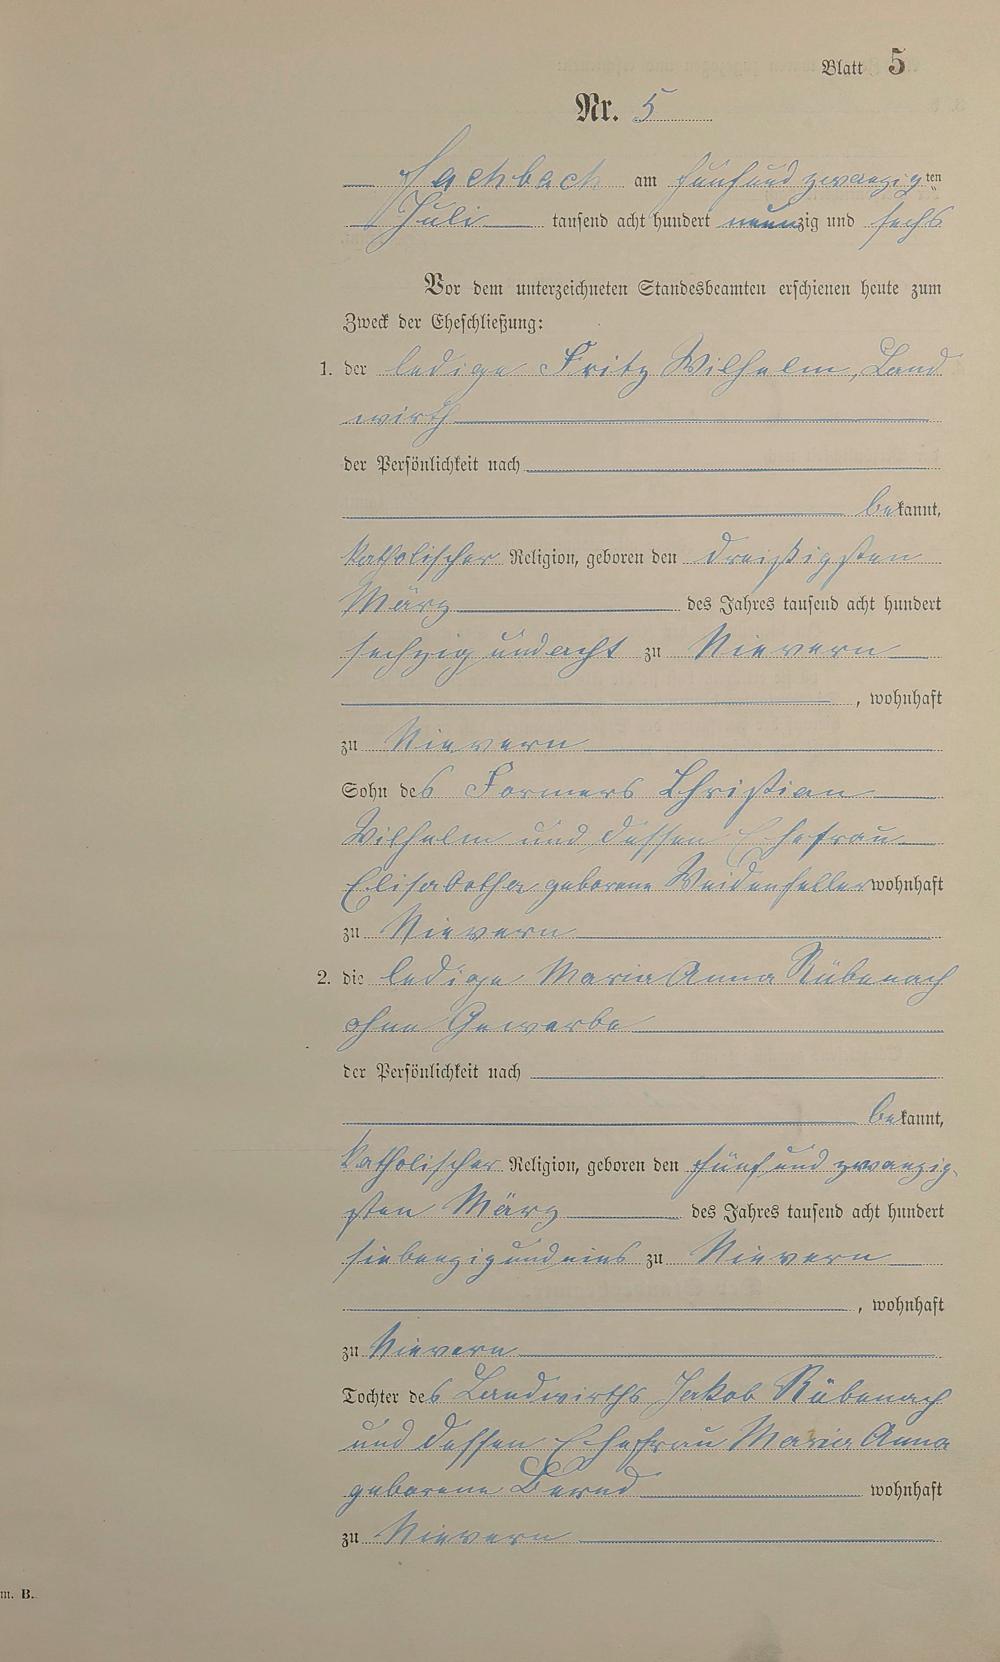 Blatt 5
Nr. 5
Fachbach am fünfundzwanzigten
Juli tausend acht hundert neunzig und sechs
Vor dem unterzeichneten Standesbeamten erschienen heute zum
Zweck der Eheschließung:
1. der ledige Fritz Wilhelm, Land
wirth
der Persönlichkeit nach
bekannt,
katholischer Religion, geboren den dreißigsten
März des Jahres tausend acht hundert
sechzig und acht zu Nievern
, wohnhaft
zu Nievern
Sohn des Formers Christian
Wilhelm und dessen Ehefrau
Elisabetha geborene Weidenfeller wohnhaft
zu Nievern
2. die ledige Maria Anna Rübenach
ohne Gewerbe
der Persönlichkeit nach
bekannt,
katholischer Religion, geboren den fünf und zwanzig
sten März des Jahres tausend acht hundert
siebenzig und eins zu Nievern
, wohnhaft
zu Nievern
Tochter des Landwirths Jakob Rübenach
und dessen Ehefrau Maria Anna
geborene Bernd wohnhaft
zu Nievern
m. B.